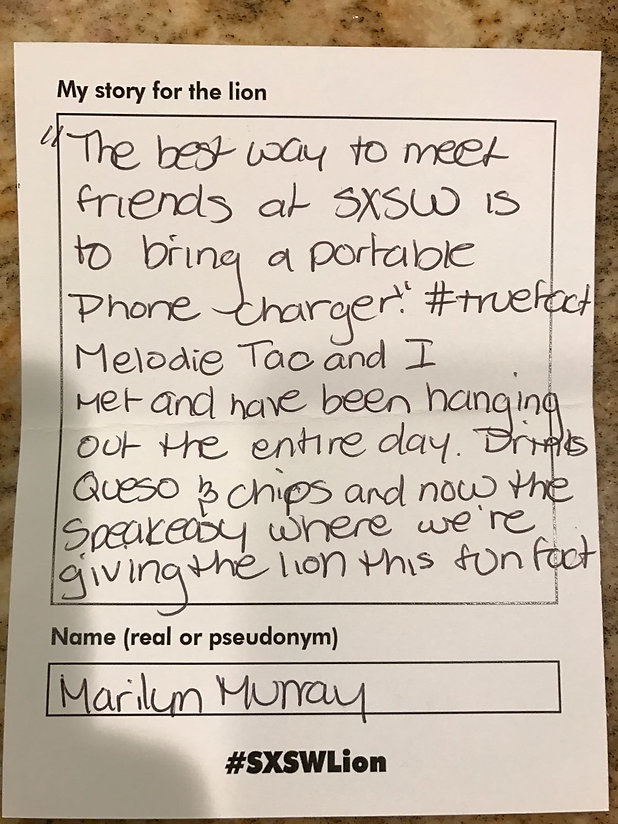 My story for the lion
"The best way to meet
friends at SXSW is
to bring a portable
Phone charger." #truefact
Melodie Tao and I
Met and have been hanging
out the entire day. Drinks
Queso & chips and now the
Speakeasy where we're
giving the lion this fun fact
Name (real or pseudonym)
Marilyn Murray
#SXSWLion